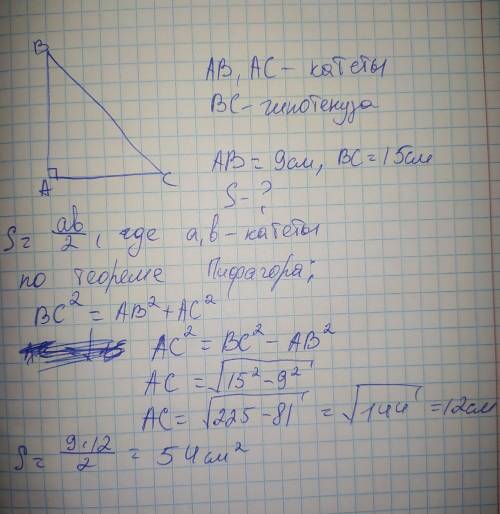 B
AB, AC - катеты
BC - гипотенуза
AB = 9см, BC = 15см
A
C
S - ?
S = ab/2, где a, b - катеты
по теореме Пифагора:
BC² = AB² + AC²
AC² = BC² - AB²
AC = √15² - 9²
AC = √225 - 81 = √144 = 12см
S = 9·12/2 = 54см²